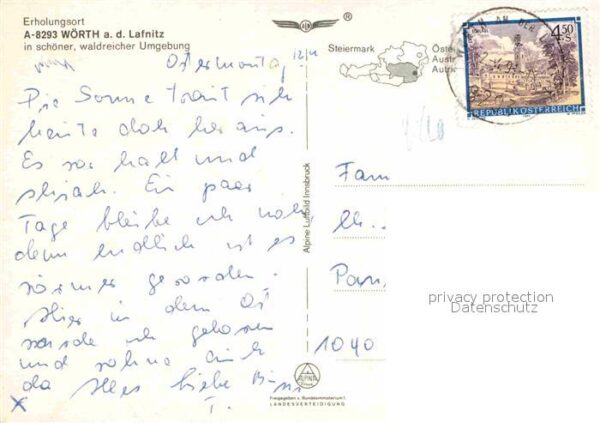 Erholungsort
A-8293 WÖRTH a. d. Lafnitz
in schöner, waldreicher Umgebung
®
Steiermark
Öste
Austr
Autri
4.50
REPUBLIK ÖSTERREICH
Ostermontag
Die Sonne traut sich
heute doch heraus.
Es war kalt und
Ein paar
Tage bleibe ich noch,
denn endlich ist es
wärmer geworden.
Hier in dem Ort
wurde ich geboren
und wohne auch
da. Alles liebe
Alpine Luftbild Innsbruck
Fam
1040
privacy protection
Datenschutz
ALPINE
Freigegeben v. Bundesministerium f.
LANDESVERTEIDIGUNG